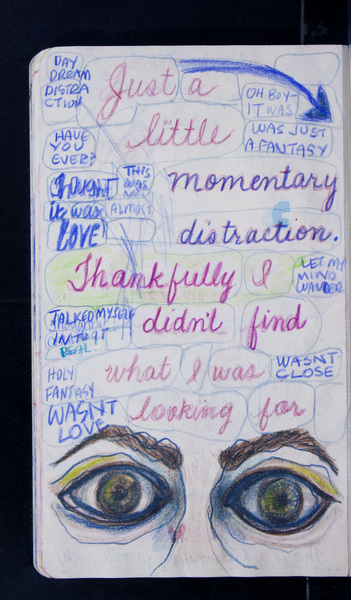 DAY
DREAM
DISTRA
CTION
Just a
OH BOY-
IT WAS
little
WAS JUST
A FANTASY
HAVE
YOU
EVER?
THOUGHT
it was
LOVE
THIS
WAS
ALMOST
momentary
distraction.
Thankfully I
LET MY
MIND
WANDER
TALKED MYSELF
INTO IT
REAL!
didn't find
HOLY
FANTASY
what I was
WASNT
CLOSE
WASN'T
LOVE
looking for